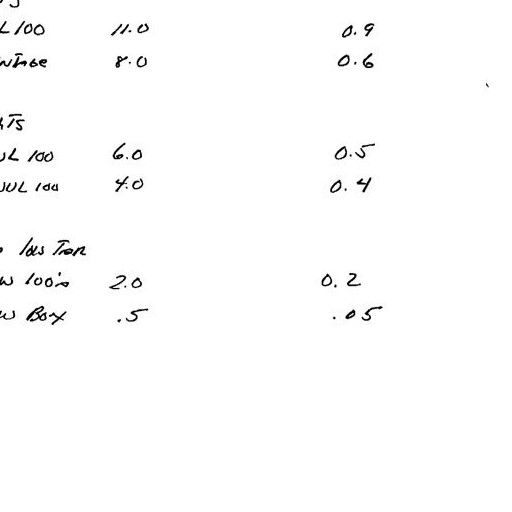 L 100 11.0 0.9
ntage 8.0 0.6
hts
UL 100 6.0 0.5
UUL 100 4.0 0.4
low Tar
w 100's 2.0 0.2
w Box .5 .05